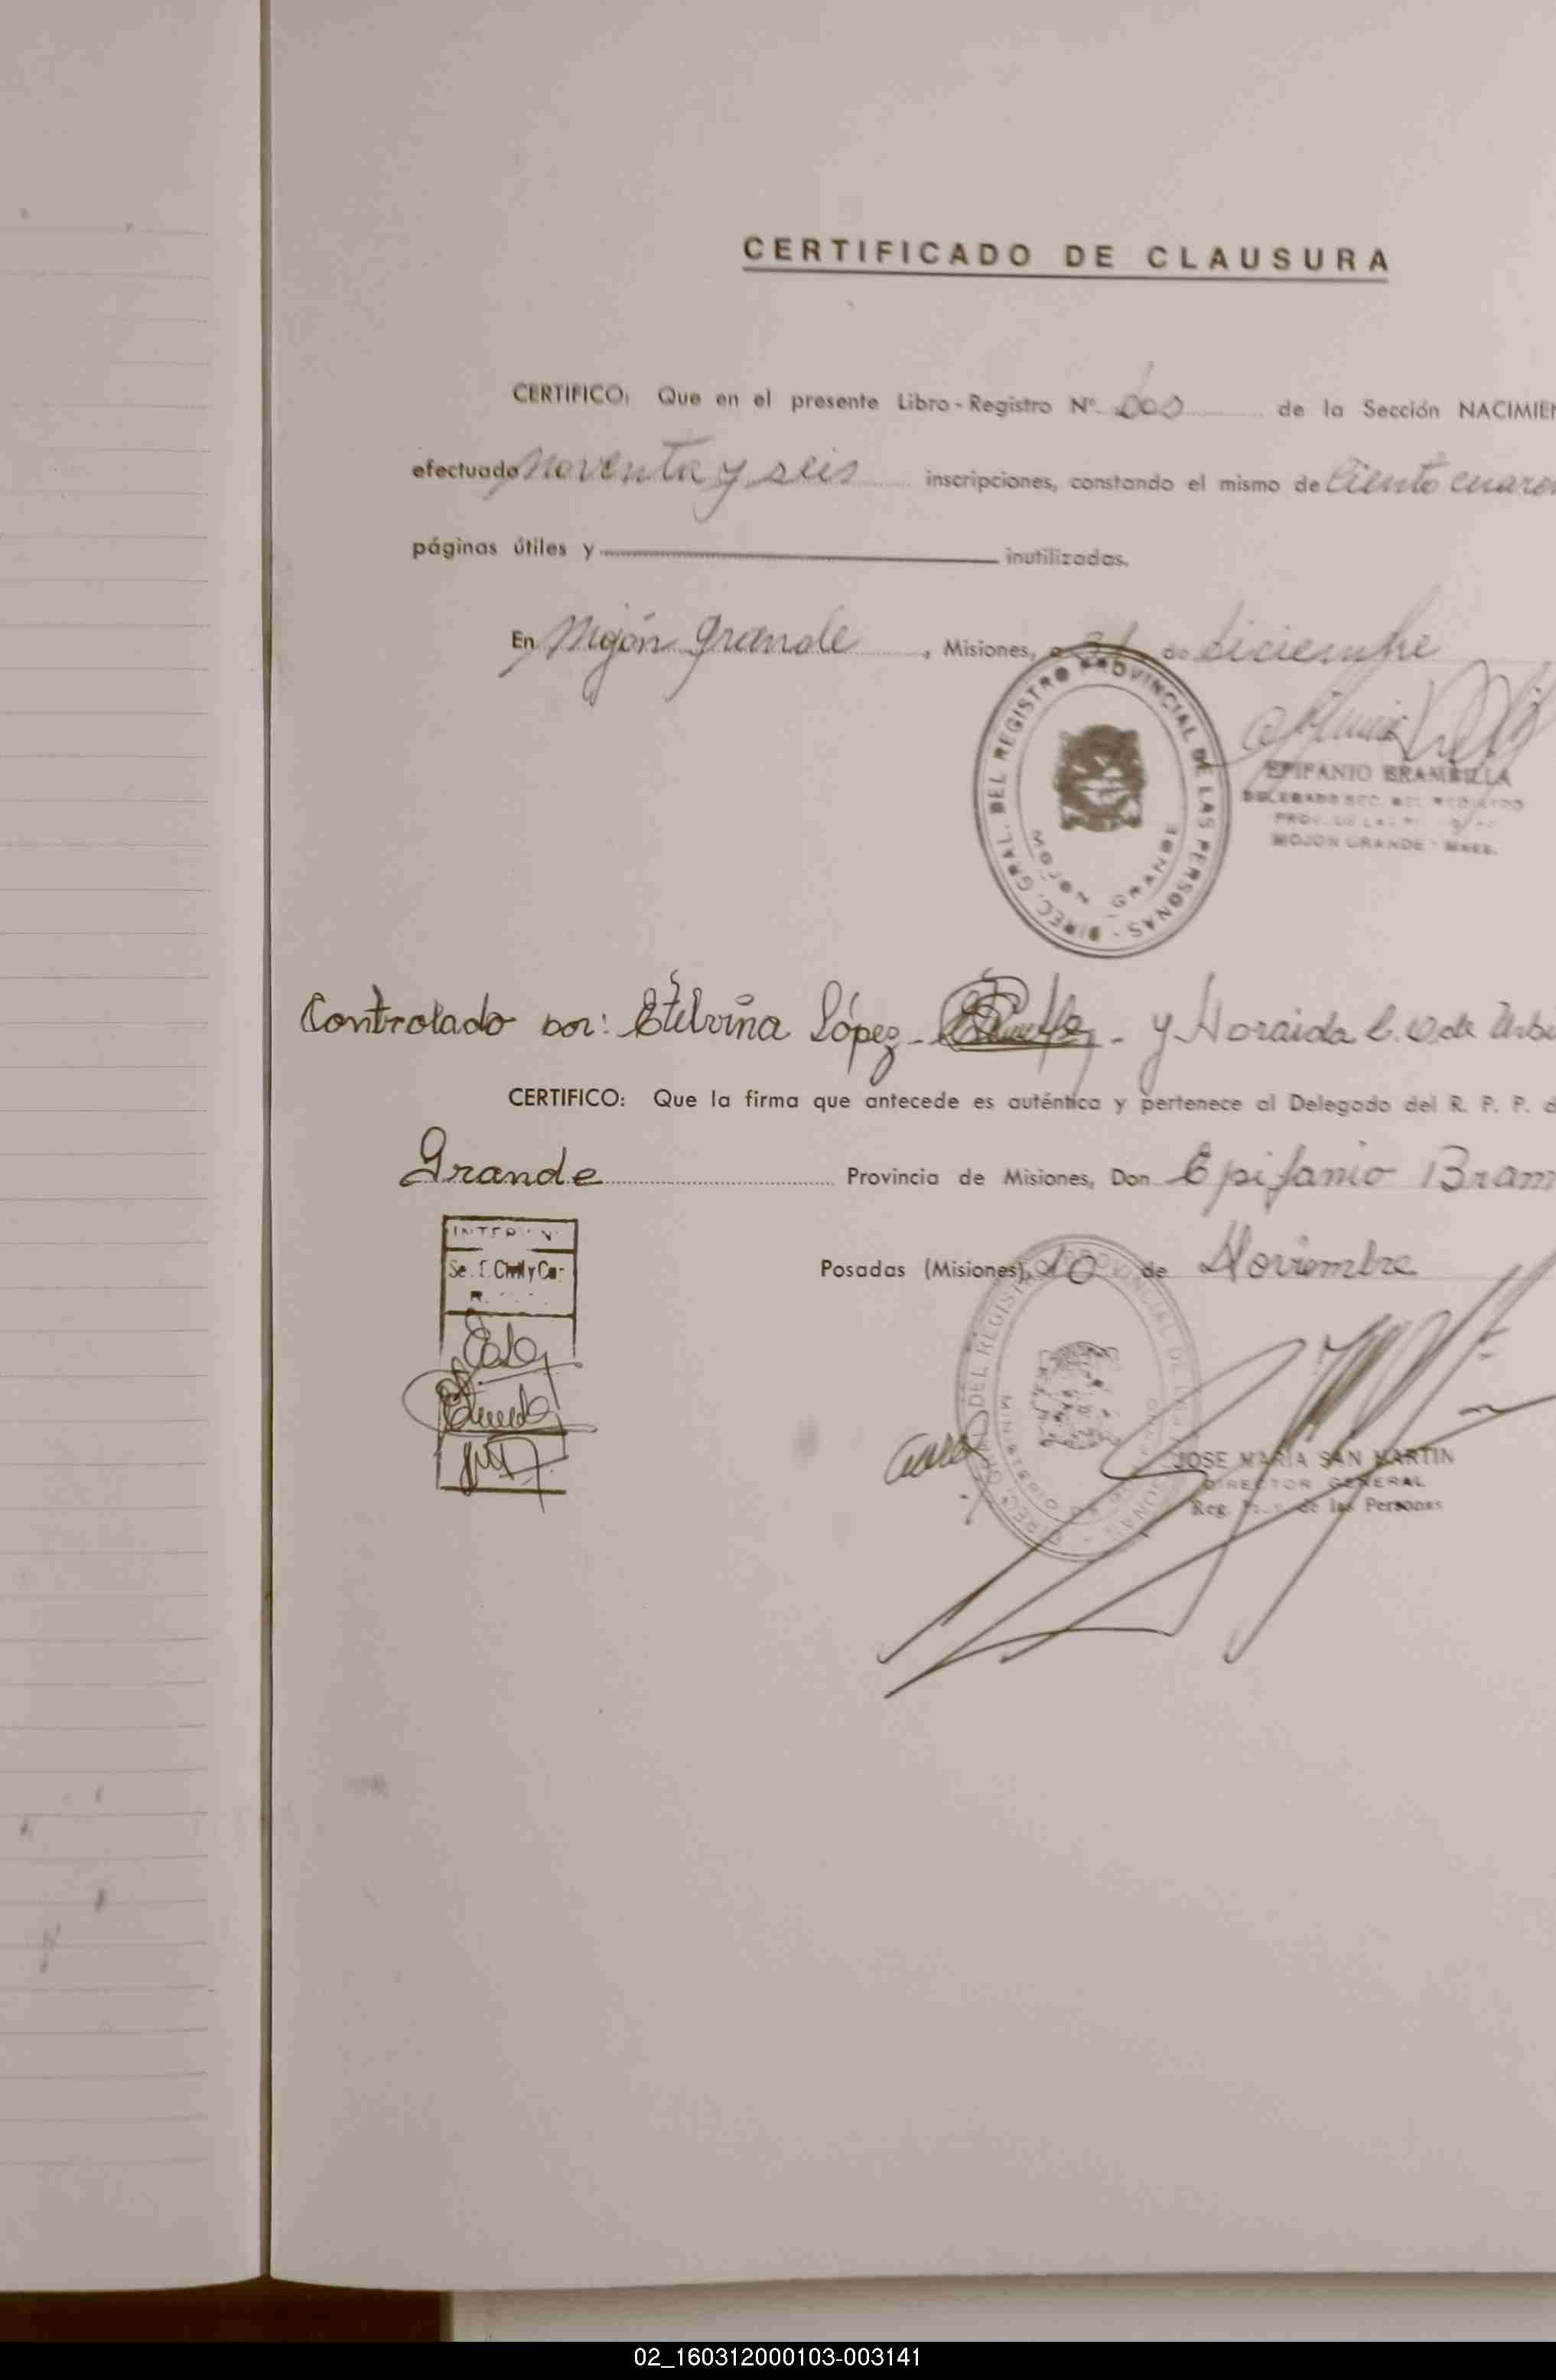 CERTIFICADO DE CLAUSURA
CERTIFICO: Que en el presente Libro-Registro Nº Dos de la Sección NACIMIEN
efectuado Noventa y seis inscripciones, constando el mismo de Ciento cuaren
páginas útiles y inutilizadas.
En Mojón Grande, Misiones, a 31 de Diciembre
DIREC. GRAL. DEL REGISTRO PROVINCIAL DE LAS PERSONAS -
MOJON GRANDE
EPIFANIO BRAMBILLA
DELEGADO SEC. DEL REGISTRO
PROV. DE LAS
MOJON GRANDE - MNES.
Controlado por: Etelvina López - y Horaida C. O. de Urbi
CERTIFICO: Que la firma que antecede es auténtica y pertenece al Delegado del R. P. P. d
Grande Provincia de Misiones, Don Epifanio Bram
Posadas (Misiones), 10 de Noviembre
Civil y Ca
DIREC. GRAL. DEL REGISTRO PROVINCIAL DE LAS PERSONAS -
JOSE MARIA SAN MARTIN
DIRECTOR GENERAL
Reg. Prov. de las Personas
02_160312000103-003141